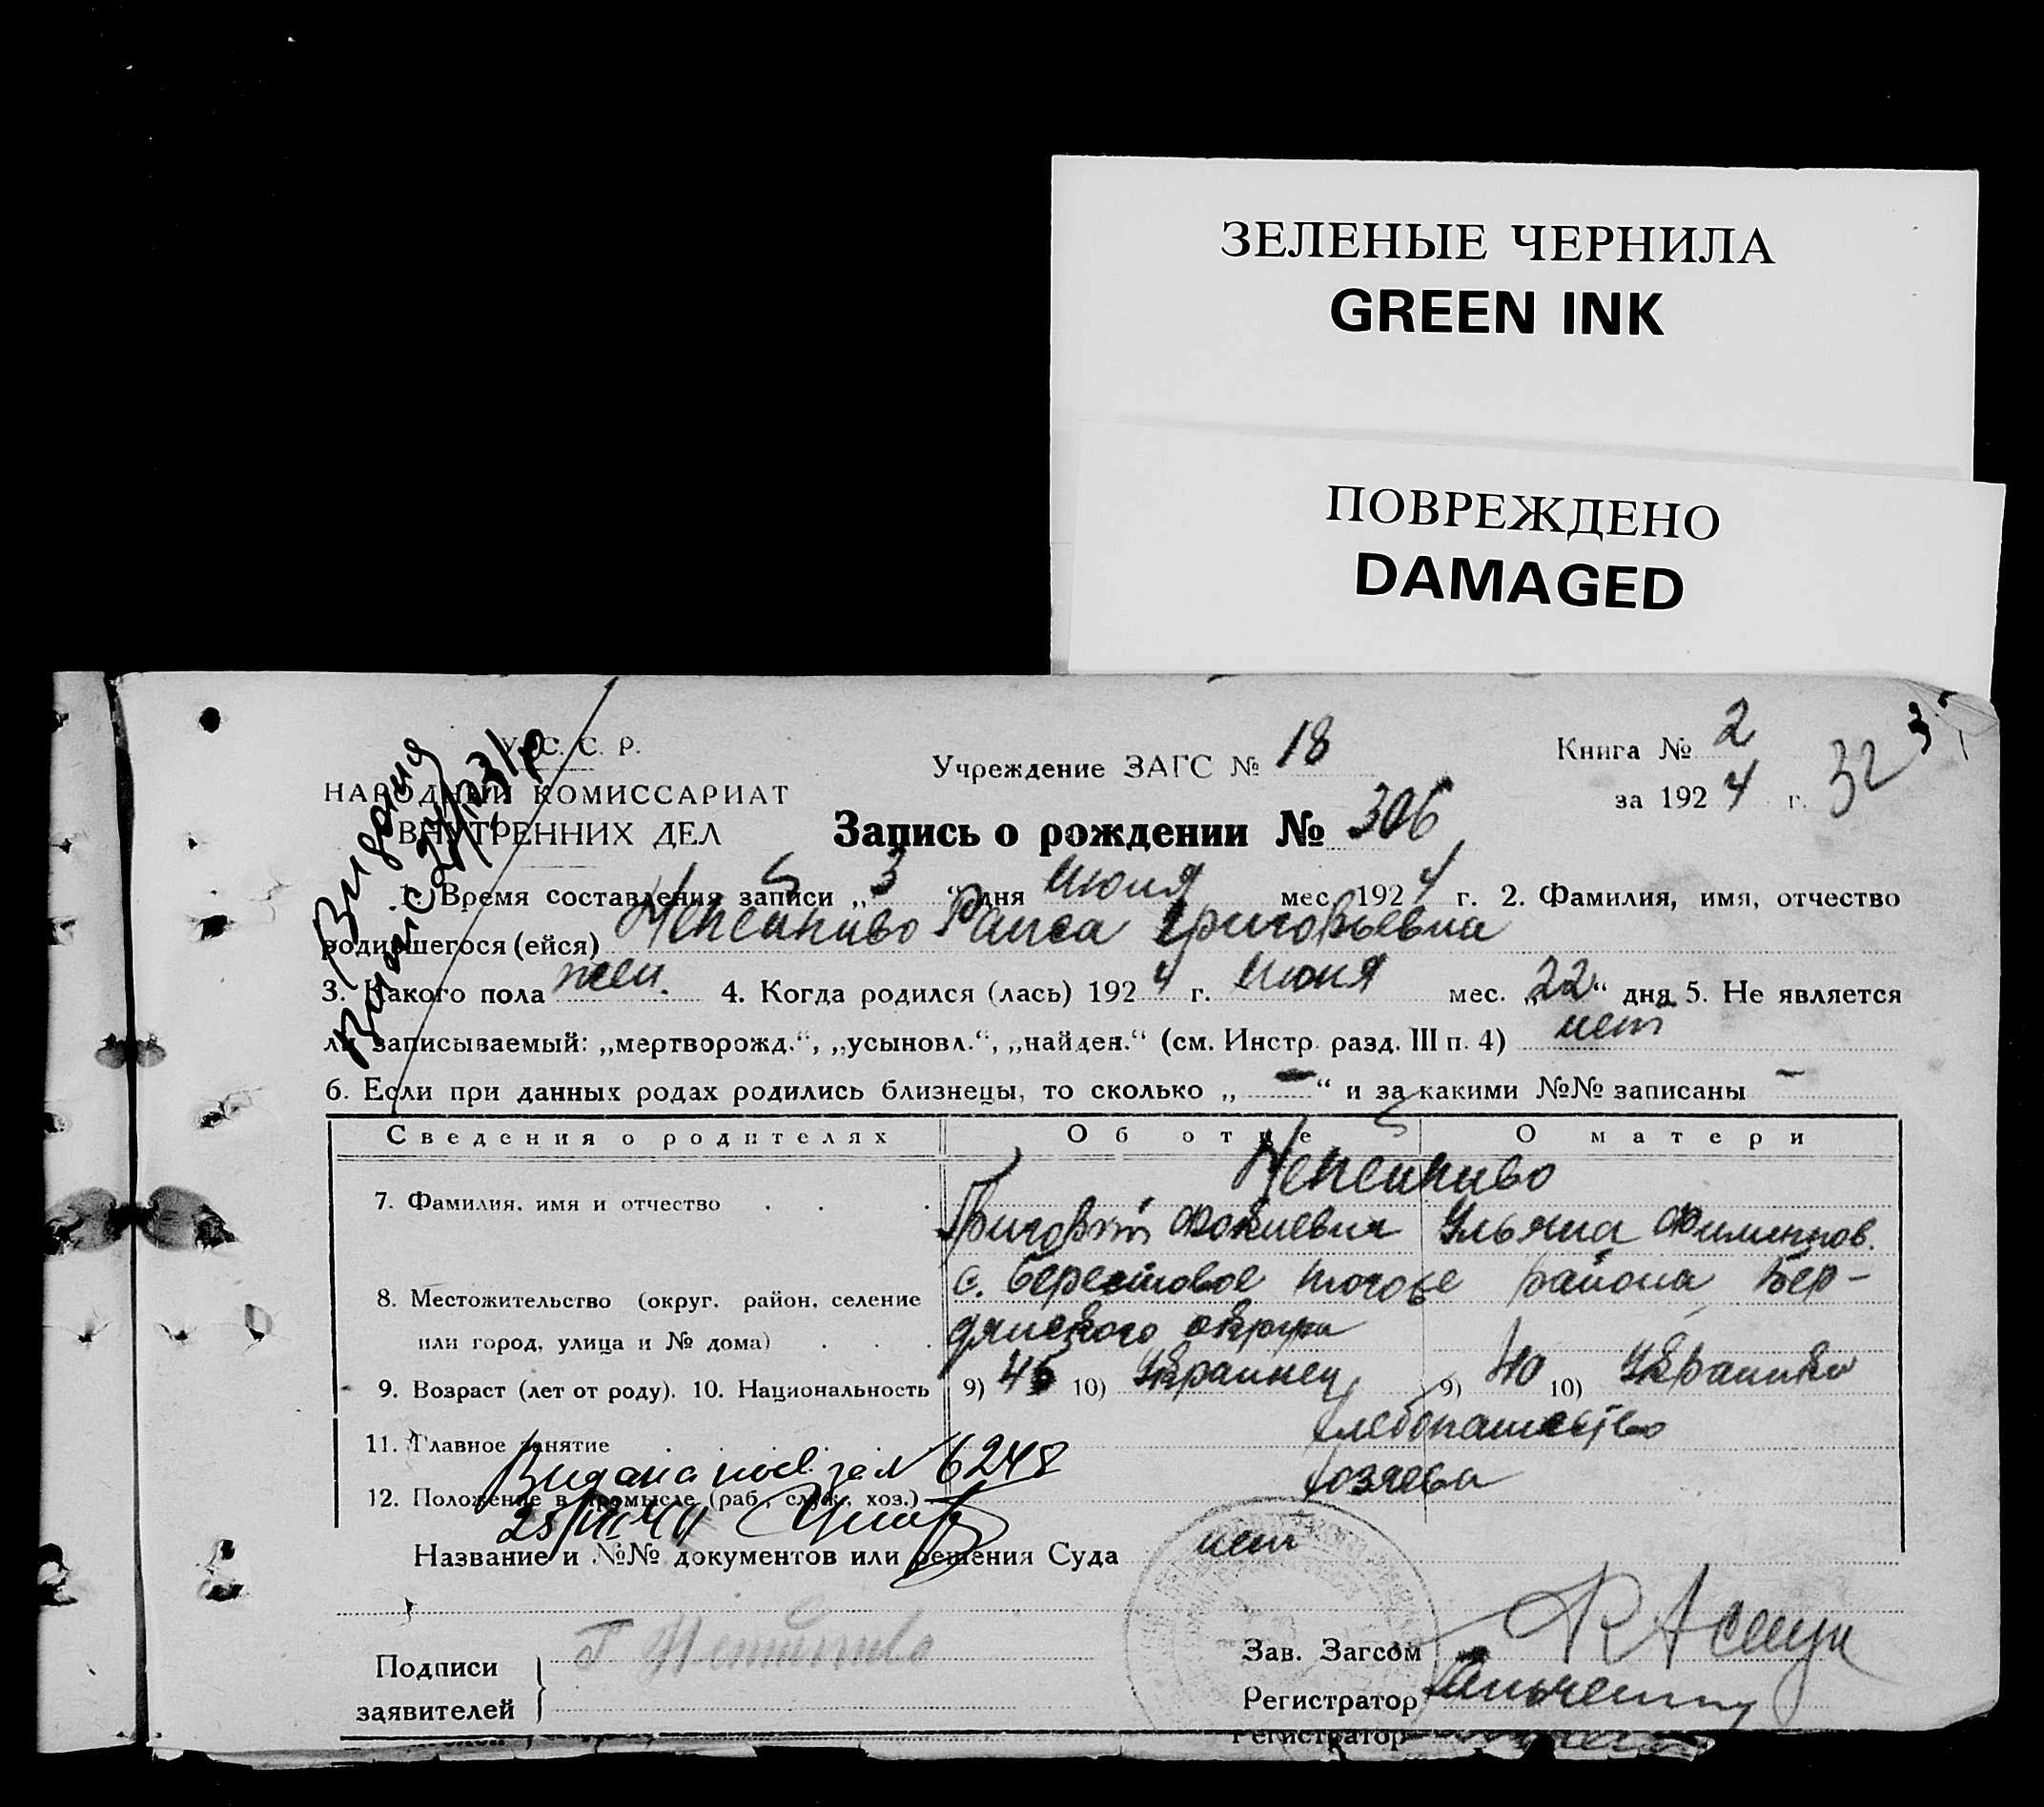 ЗЕЛЕНЫЕ ЧЕРНИЛА
GREEN INK
ПОВРЕЖДЕНО
DAMAGED
У. С. С. Р.
НАРОДНЫЙ КОМИССАРИАТ
ВНУТРЕННИХ ДЕЛ
Учреждение ЗАГС № 18
Книга № 2
за 1924 г.
32
3
Запись о рождении № 306
1. Время составления записи „3“ дня июля мес. 1924 г. 2. Фамилия, имя, отчество
родившегося (ейся) Непейпиво Раиса Григорьевна
3. Какого пола жен. 4. Когда родился (лась) 1924 г. июня мес. „22“ дня 5. Не является
ли записываемый: „мертворожд.“, „усыновл.“, „найден.“ (см. Инстр. разд. III п. 4) нет
6. Если при данных родах родились близнецы, то сколько „—“ и за какими №№ записаны —
Сведения о родителях Об отце О матери
Непейпиво
7. Фамилия, имя и отчество Григорий Фокиевич Ульяна Филиппов.
8. Местожительство (округ, район, селение с. Берестовое того же района Бер-
или город, улица и № дома) дянского округа
9. Возраст (лет от роду). 10. Национальность 9) 45 10) Украинец 9) 40 10) Украинка
11. Главное занятие хлебопашество
Видана за № 6248
12. Положение в промысле (раб., служ., хоз.) хозяева
25/VII 40
Название и №№ документов или решения Суда нет
Подписи
заявителей
Г Непейпиво
Зав. Загсом
Регистратор
Регистратор